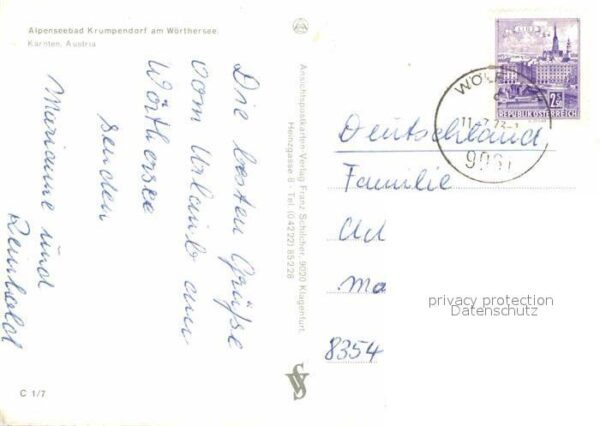 Alpenseebad Krumpendorf am Wörthersee.
Kärnten, Austria
Die besten Grüße
vom Urlaub am
Wörthersee
senden
Marianne und
Reinhold
Ansichtspostkarten-Verlag Franz Schilcher, 9020 Klagenfurt,
Heinzgasse 6 - Tel. (04222) 85228
C 1/7
LINZ
2 S
REPUBLIK ÖSTERREICH
Deutschland,
Familie
Ad
Ma
8354
privacy protection
Datenschutz